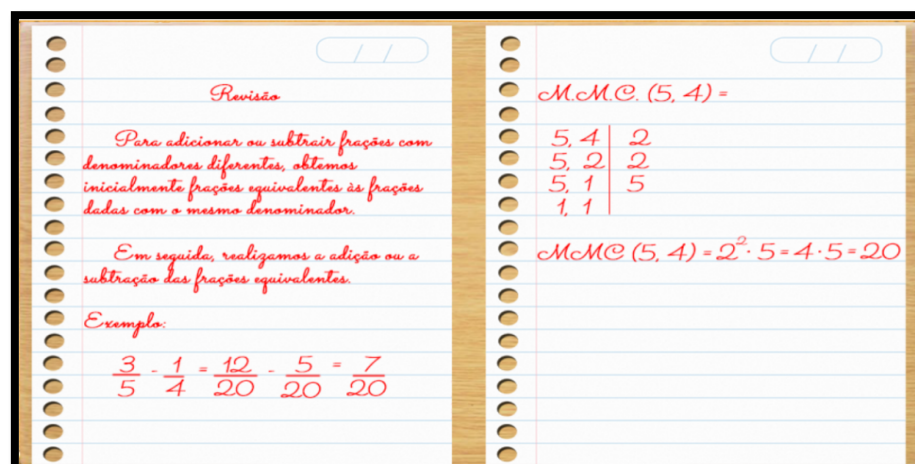 Revisão
Para adicionar ou subtrair frações com
denominadores diferentes, obtemos
inicialmente frações equivalentes às frações
dadas com o mesmo denominador.
Em seguida, realizamos a adição ou a
subtração das frações equivalentes.
Exemplo:
3/5 - 1/4 = 12/20 - 5/20 = 7/20
M.M.C. (5, 4) =
5, 4 | 2
5, 2 | 2
5, 1 | 5
1, 1 |
MMC (5, 4) = 2² · 5 = 4 · 5 = 20